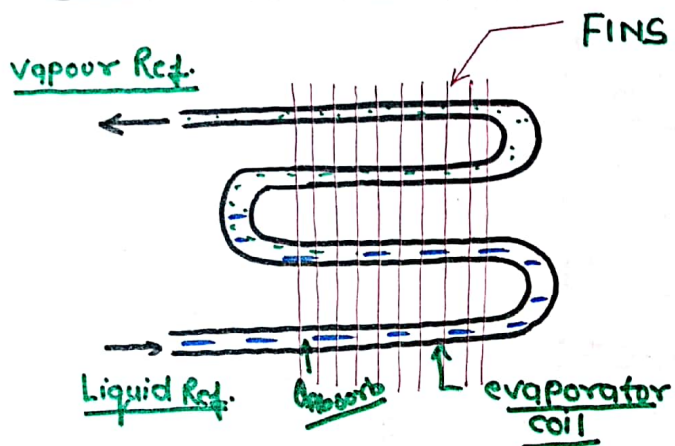 FINS
vapour Ref.
Liquid Ref.
evaporator
coil